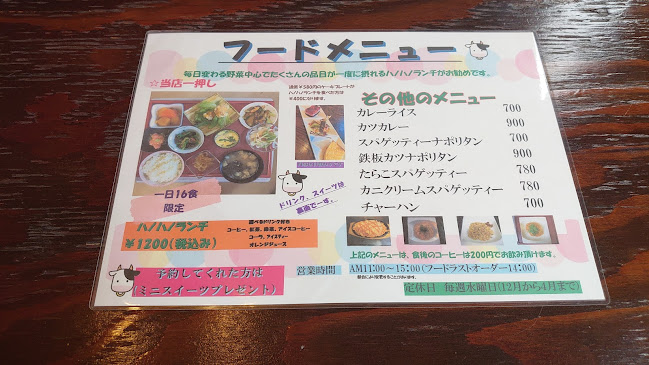 フードメニュー
毎日変わる野菜中心でたくさんの品目が一度に摂れるハノハノランチがお勧めです。
☆当店一押し
通常¥580円のケーキプレートが
ハノハノランチを食べた方は
¥400になります。
一日16食
限定
ドリンク、スイーツは
裏面でーす。
ハノハノランチ
¥1200(税込み)
選べるドリンク付き
コーヒー、紅茶、緑茶、アイスコーヒー
コーラ、アイスティー
オレンジジュース
予約してくれた方は
(ミニスイーツプレゼント)
その他のメニュー
カレーライス 700
カツカレー 900
スパゲッティーナポリタン 700
鉄板カツナポリタン 900
たらこスパゲッティー 780
カニクリームスパゲッティー 780
チャーハン 700
上記のメニューは、食後のコーヒーは200円でお飲み頂けます。
営業時間 AM11:00~15:00(フードラストオーダー14:00)
定休日 毎週水曜日(12月から4月まで)